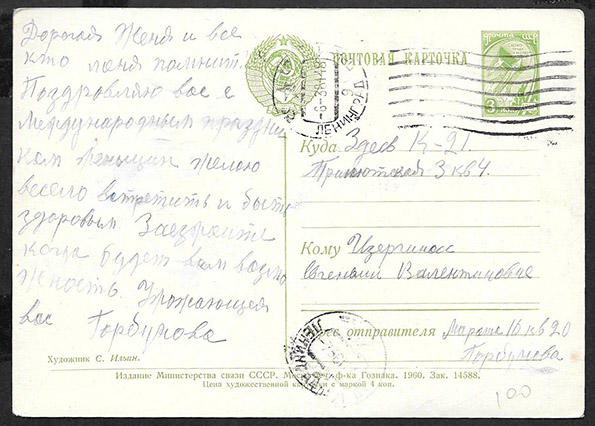 Дорогая Женя и все
кто меня помнит.
Поздравляю вас с
Международным праздни
ком Женщин желаю
весело встретить и быть
здоровым Заезжайте
когда будет вам возмо
жность. Уважающая
вас Горбунова
Художник С. Ильин.
ПОЧТОВАЯ КАРТОЧКА
ПОЧТА СССР
3
ЛЕНИНГРАД
Куда Здесь К-21.
Приютская 3 кв 4.
Кому
Евгении Валентиновне
Адрес отправителя Марата 16 кв 20
Горбунова
ЛЕНИНГРАД
Издание Министерства связи СССР. Гознака. 1960. Зак. 14588.
Цена художественной карточки с маркой 4 коп.
100